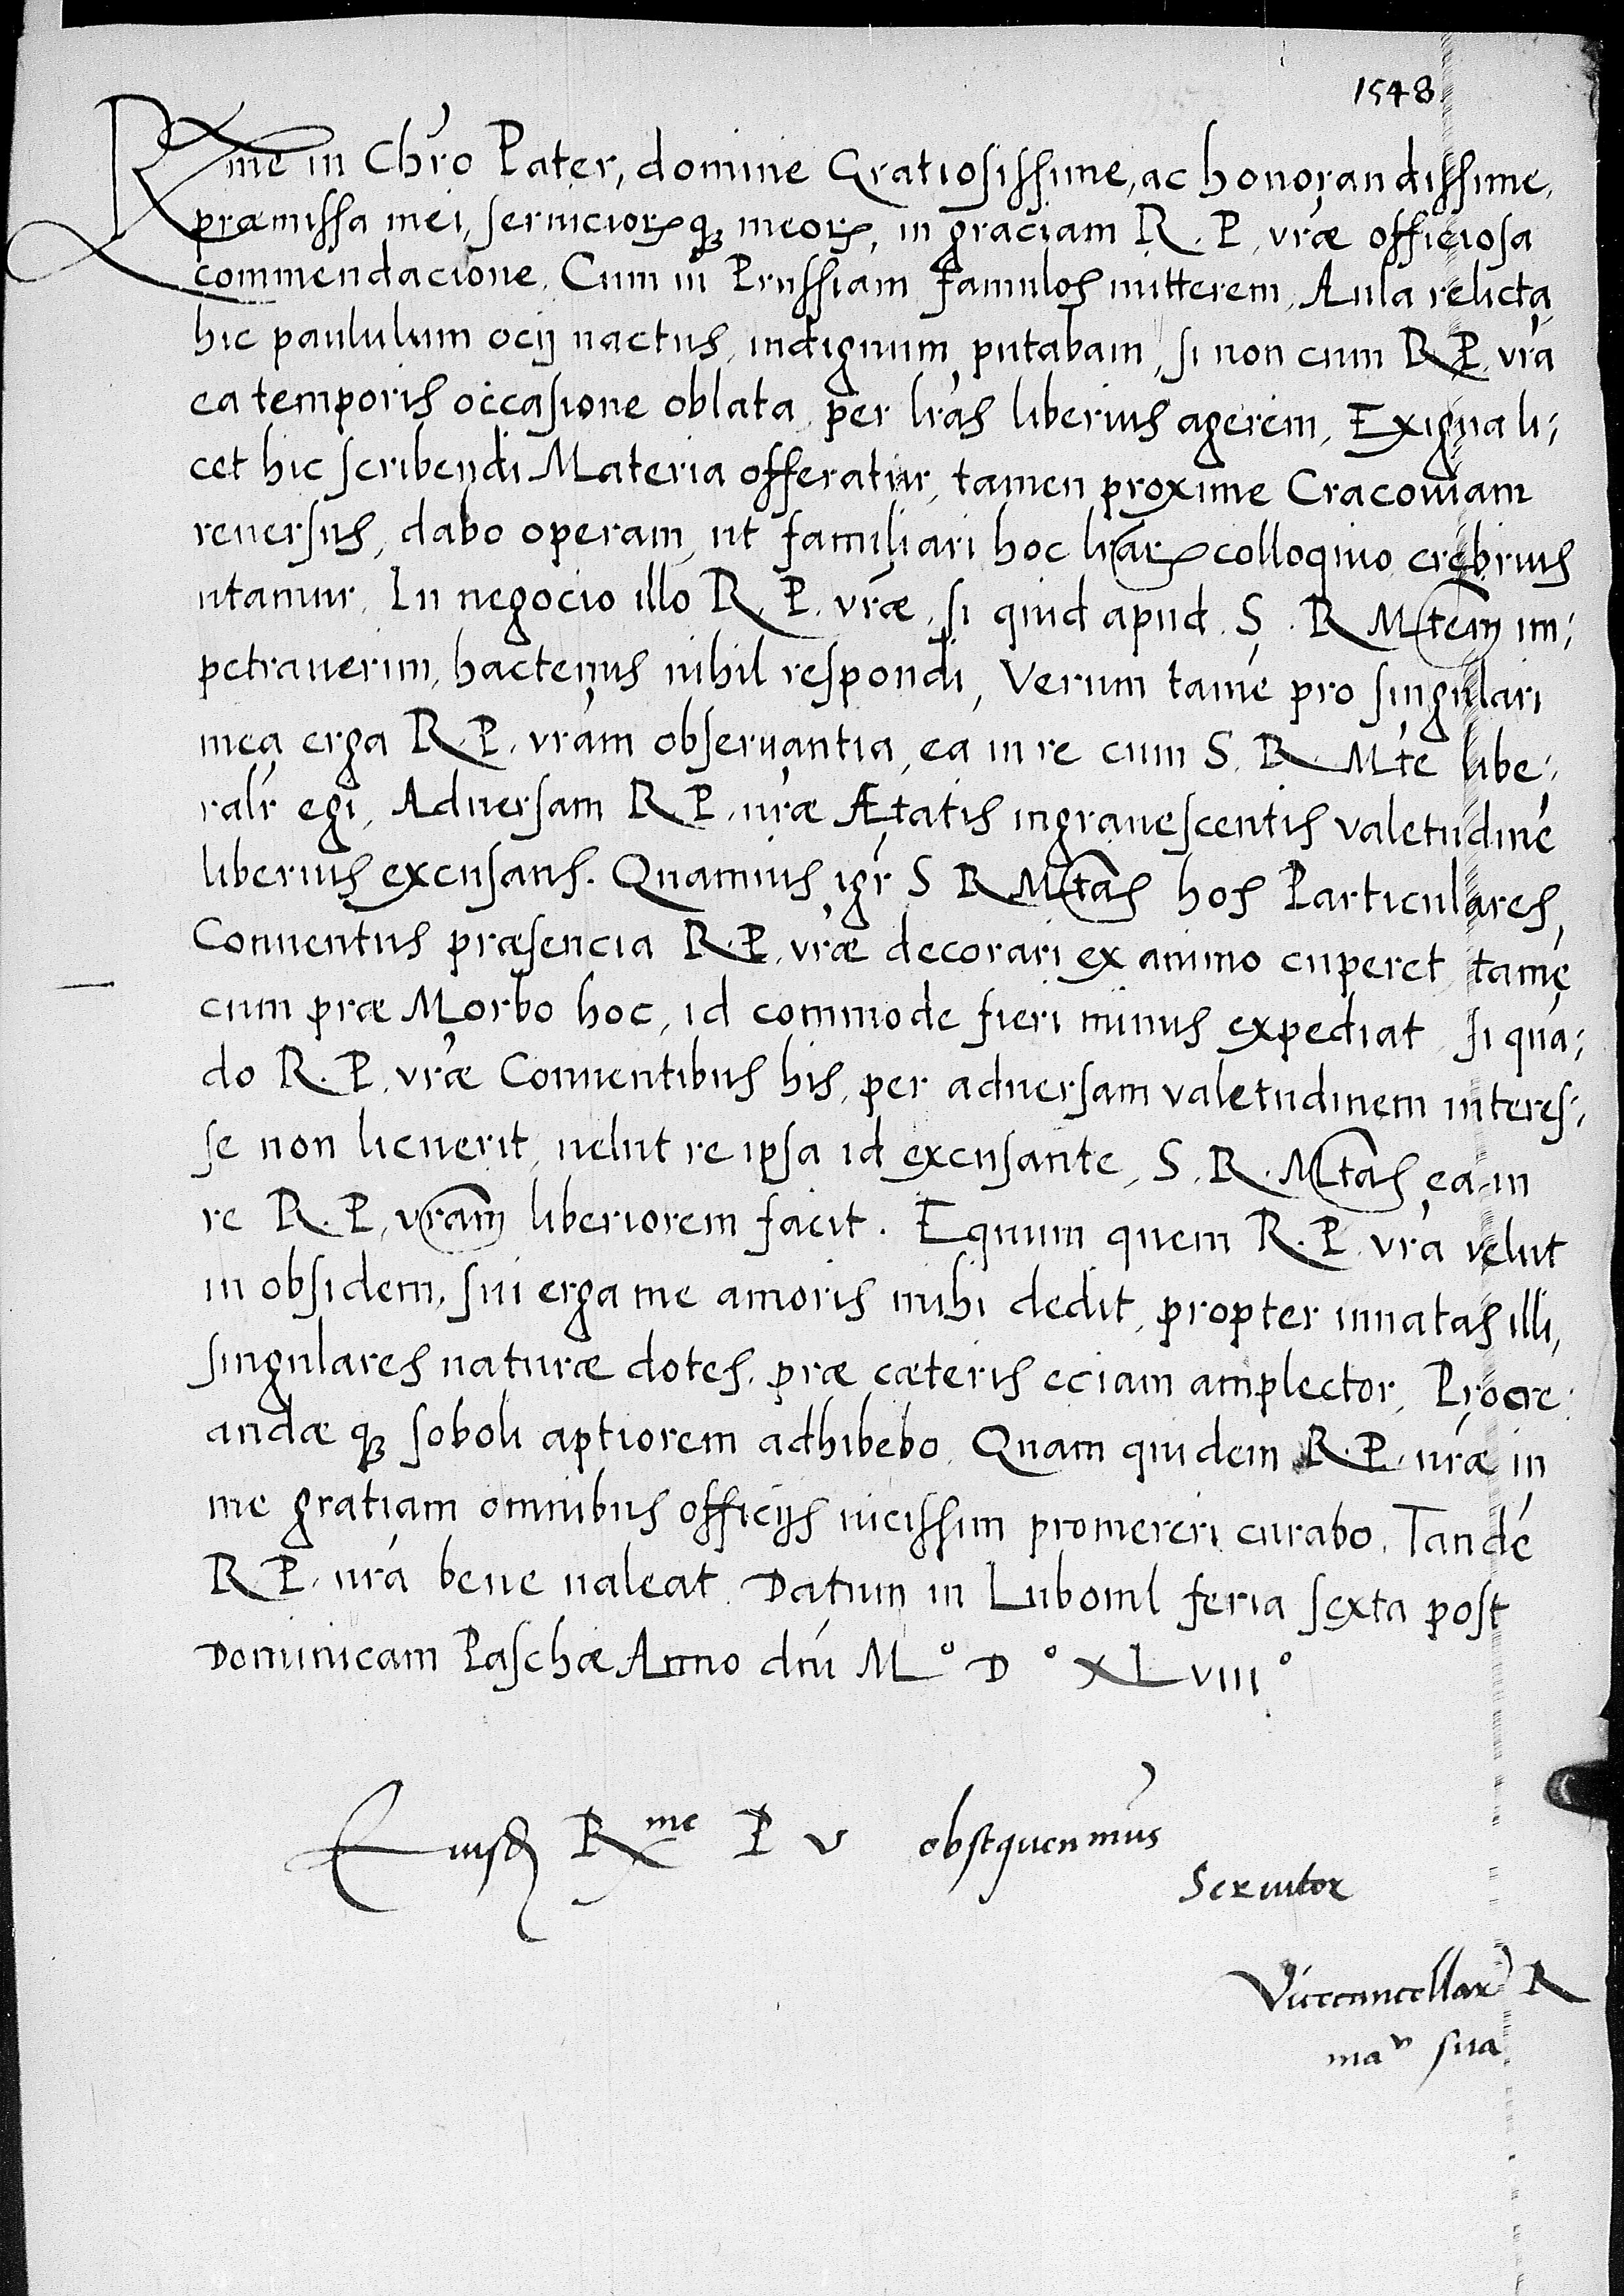 1548
Rme in Chro Pater, domine Gratiosissime, ac honorandissime,
præmissa mei, servicioꝝ qꝫ meoꝝ, in graciam R. P. vræ officiosa
commendacione. Cum in Prussiam famulos mitterem, Aula relicta
hic paululum ocij nactus, indignum putabam, si non cum R P. vra
ea temporis occasione oblata per lras liberius agerem, Exigua li;
cet hic scribendi Materia offeratur, tamen proxime Cracoviam
reversus, dabo operam, ut familiari hoc lraꝝ colloquio crebrius
utamur. In negocio illo R. P. vræ, si quid apud S. R Mtem im;
petraverim, hactenus nihil respondi, Verum tamē pro singulari
mea erga R. P. vram observantia, ea in re cum S. R. Mte libe;
ralr egi, Adversam R P. uræ Ætatis ingravescentis valetudinē
liberius excusans. Quamvis igr S R Mtas hos Particulares,
Conventus præsencia R. P. vræ decorari ex animo cuperet, tamē
cum præ Morbo hoc, id commode fieri minus expediat, si quā;
do R. P. vræ Conventibus his, per adversam valetudinem interes;
se non licuerit, uelut re ipsa id excusante, S. R. Mtas ea in
re R. P. vram liberiorem facit. Equum quem R. P. vra velut
in obsidem, sui erga me amoris mihi dedit, propter innatas illi,
singulares naturæ dotes, præ cæteris eciam amplector, Procre;
andæ qꝫ soboli aptiorem adhibebo. Quam quidem R. P. uræ in
me gratiam omnibus officijs vicissim promereri curabo. Tandē
R P. ura bene ualeat. Datum in Luboml feria sexta post
Dominicam Paschæ Anno dni M° D° XLVIII°
Eiusd Rme P V obsequenmus
Servitor
Vicecancellar R
mav sua